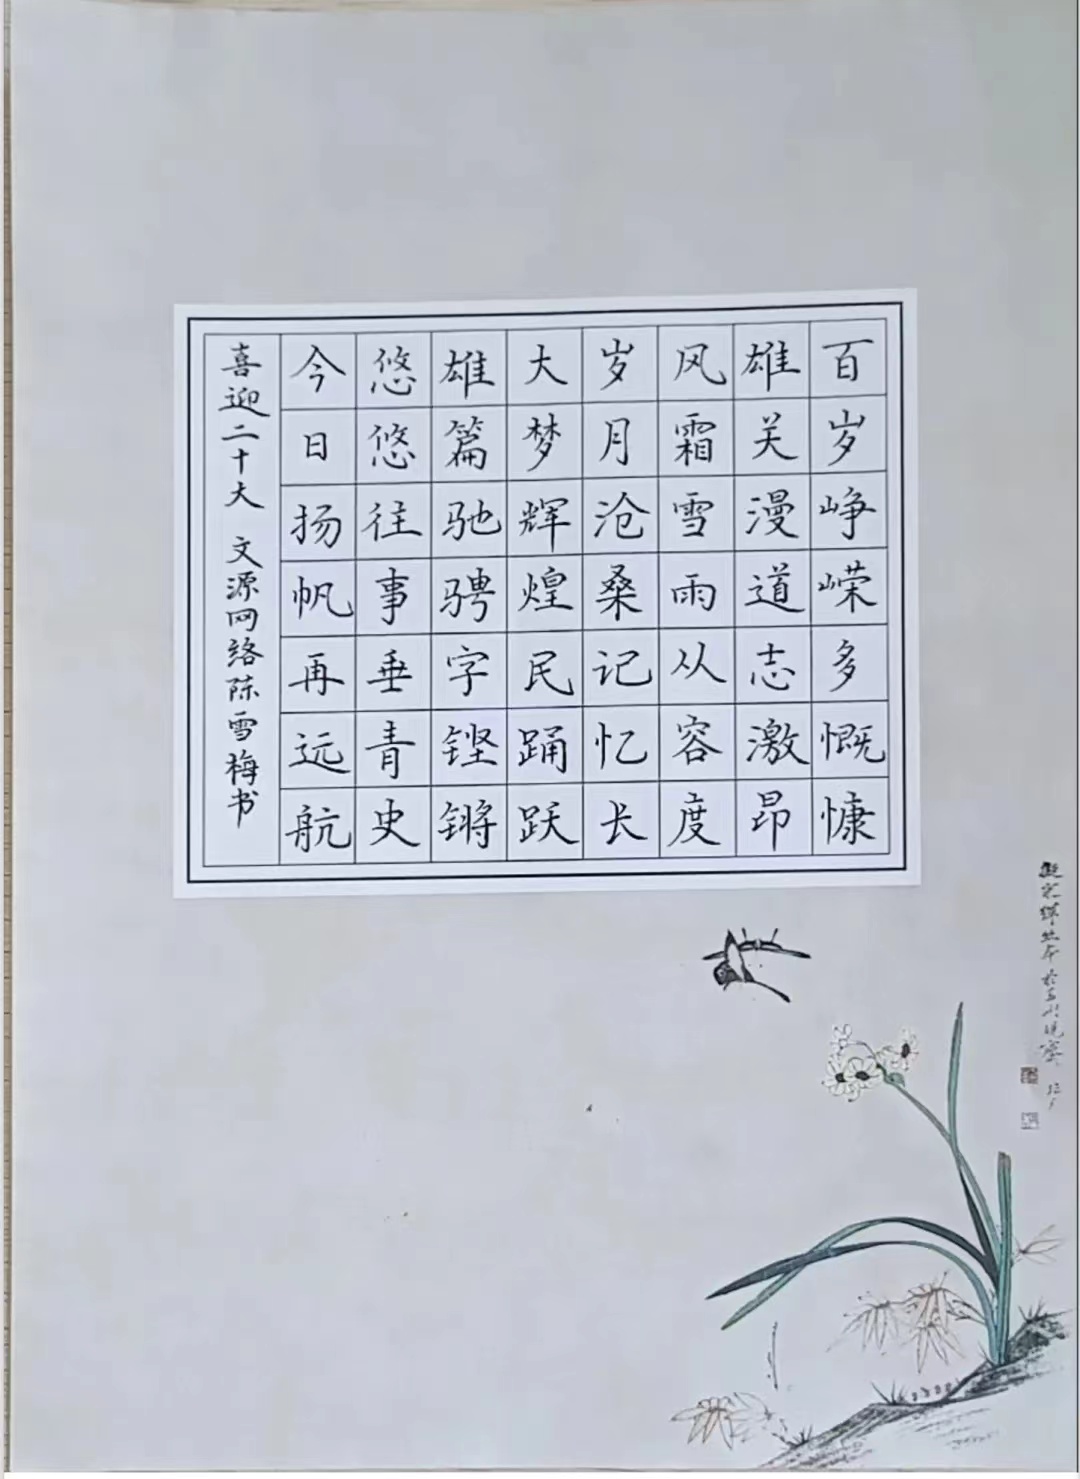 百岁峥嵘多慨慷
雄关漫道志激昂
风霜雪雨从容度
岁月沧桑记忆长
大梦辉煌民踊跃
雄篇驰骋字铿锵
悠悠往事垂青史
今日扬帆再远航
喜迎二十大 文源网络陈雪梅书